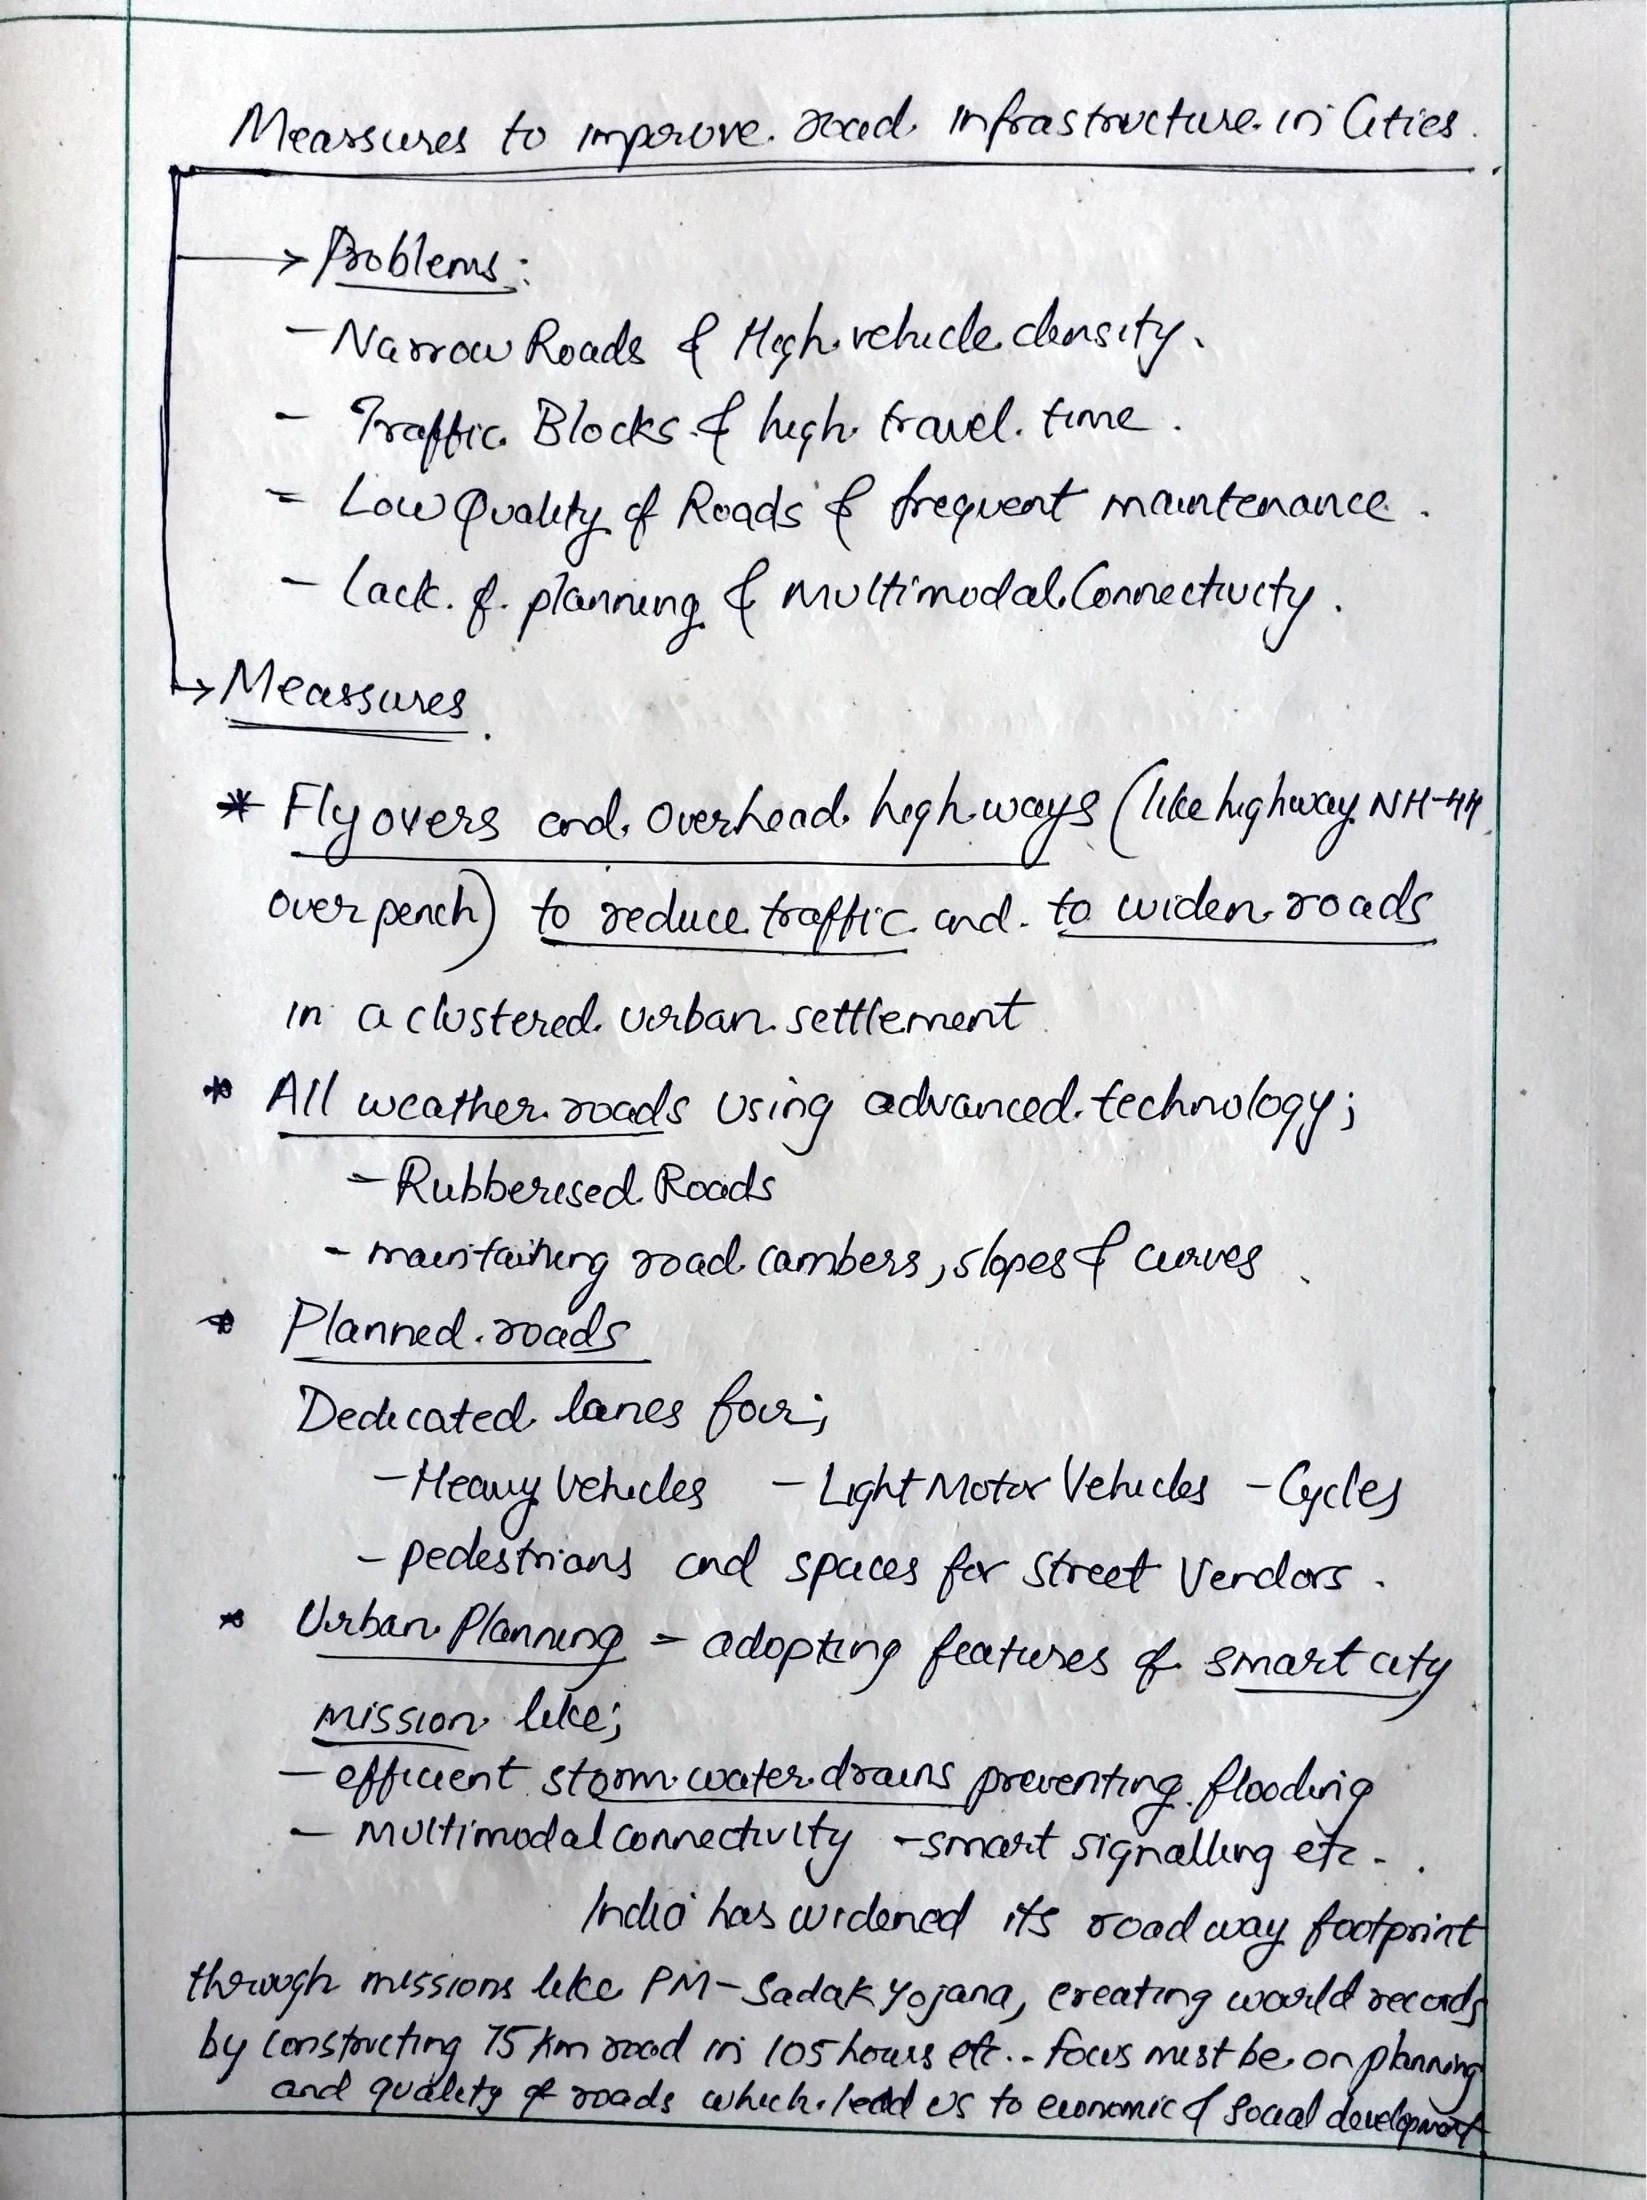 Meassures to improve road infrastructure in Cities.
→ Problems:
- Narrow Roads & High vehicle density.
- Traffic Blocks & high travel time.
- Low Quality of Roads & frequent maintenance.
- Lack of planning & multimodal Connectivity.
→ Meassures.
* Flyovers and Overhead highways (like highway NH-44
over pench) to reduce traffic and to widen roads
in a clustered urban settlement
* All weather roads using advanced technology;
- Rubberised Roads
- maintaining road cambers, slopes & curves.
* Planned roads
Dedicated lanes for;
- Heavy Vehicles - Light Motor Vehicles - Cycles
- pedestrians and spaces for Street Vendors.
* Urban Planning - adopting features of smart city
mission like;
- efficient storm water drains preventing flooding
- multimodal connectivity - smart signalling etc..
India has widened its road way footprint
through missions like PM-Sadak Yojana, creating world records
by constructing 75 km road in 105 hours etc.. focus must be on planning
and quality of roads which lead us to economic & social development